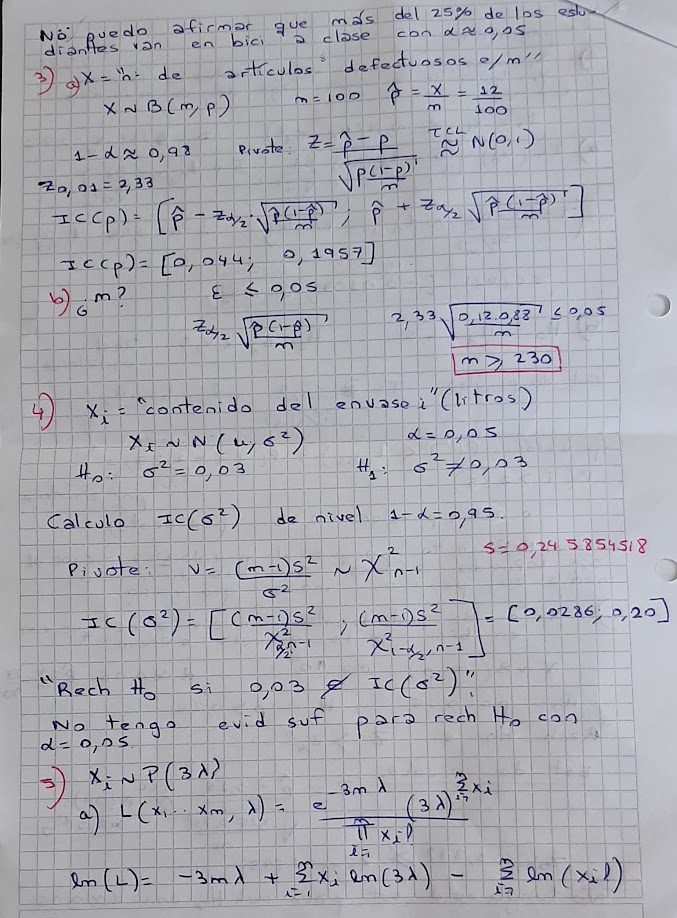 No puedo afirmar que más del 25% de los estu-
diantes van en bici a clase con α ≈ 0,05
3) a) X = "n° de artículos defectuosos e/m"
X ~ B(m,p) m = 100 p̂ = x/m = 12/100
1-α ≈ 0,98 Pivote: Z = (p̂ - p)/√(p(1-p)/m) ≈ TCL N(0,1)
Z0,01 = 2,33
IC(p) = [p̂ - Zα/2 · √(p̂(1-p̂)/m) ; p̂ + Zα/2 √(p̂(1-p̂)/m)]
IC(p) = [0,044; 0,1957]
b) ¿m? ε ≤ 0,05
Zα/2 √(p̂(1-p̂)/m) 2,33 √(0,12.0,88/m) ≤ 0,05
m ≥ 230
4) Xi = "contenido del envase i" (litros)
Xi ~ N(μ, σ²) α = 0,05
H0: σ² = 0,03 H1: σ² ≠ 0,03
Calculo IC(σ²) de nivel 1-α = 0,95.
S = 0,245854518
Pivote: V = (m-1)S²/σ² ~ X²n-1
IC(σ²) = [(m-1)S²/X²α/2,n-1 ; (m-1)S²/X²1-α/2,n-1] = [0,0286; 0,20]
"Rech H0 si 0,03 ∉ IC(σ²)"
No tengo evid suf para rech H0 con
α = 0,05
5) Xi ~ P(3λ)
a) L(x1...xm, λ) = e^(-3mλ) (3λ)^(Σ xi) / Π xi!
ln(L) = -3mλ + Σ xi ln(3λ) - Σ ln(xi!)